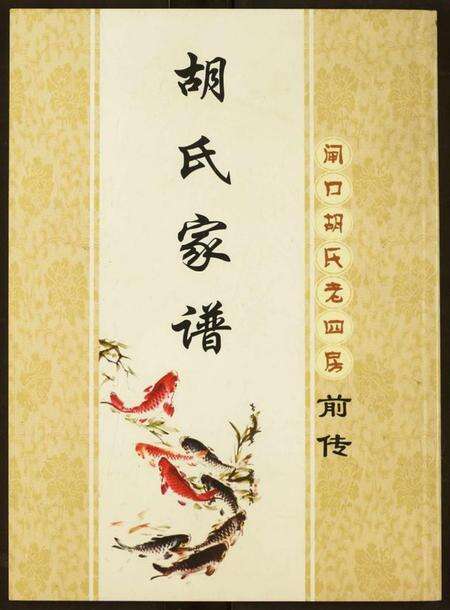 胡氏家谱
闸口胡氏老四房前传